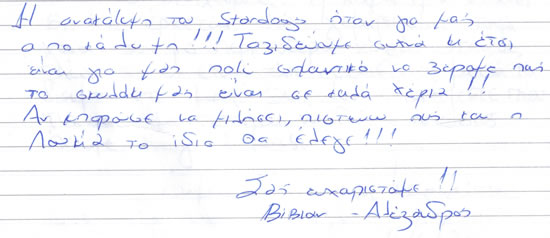 Η ανακάλυψη του Stardogs ήταν για μας
αποκάλυψη!!! Ταξιδεύουμε συχνά κ έτσι
είναι για μας πολύ σημαντικό να ξέρουμε πως
το σκυλάκι μας είναι σε καλά χέρια!!
Αν μπορούσε να μιλήσει, πιστεύω πως και η
Λουκία το ίδιο θα έλεγε!!!
Σας ευχαριστούμε!!
Βίβιαν - Αλέξανδρος